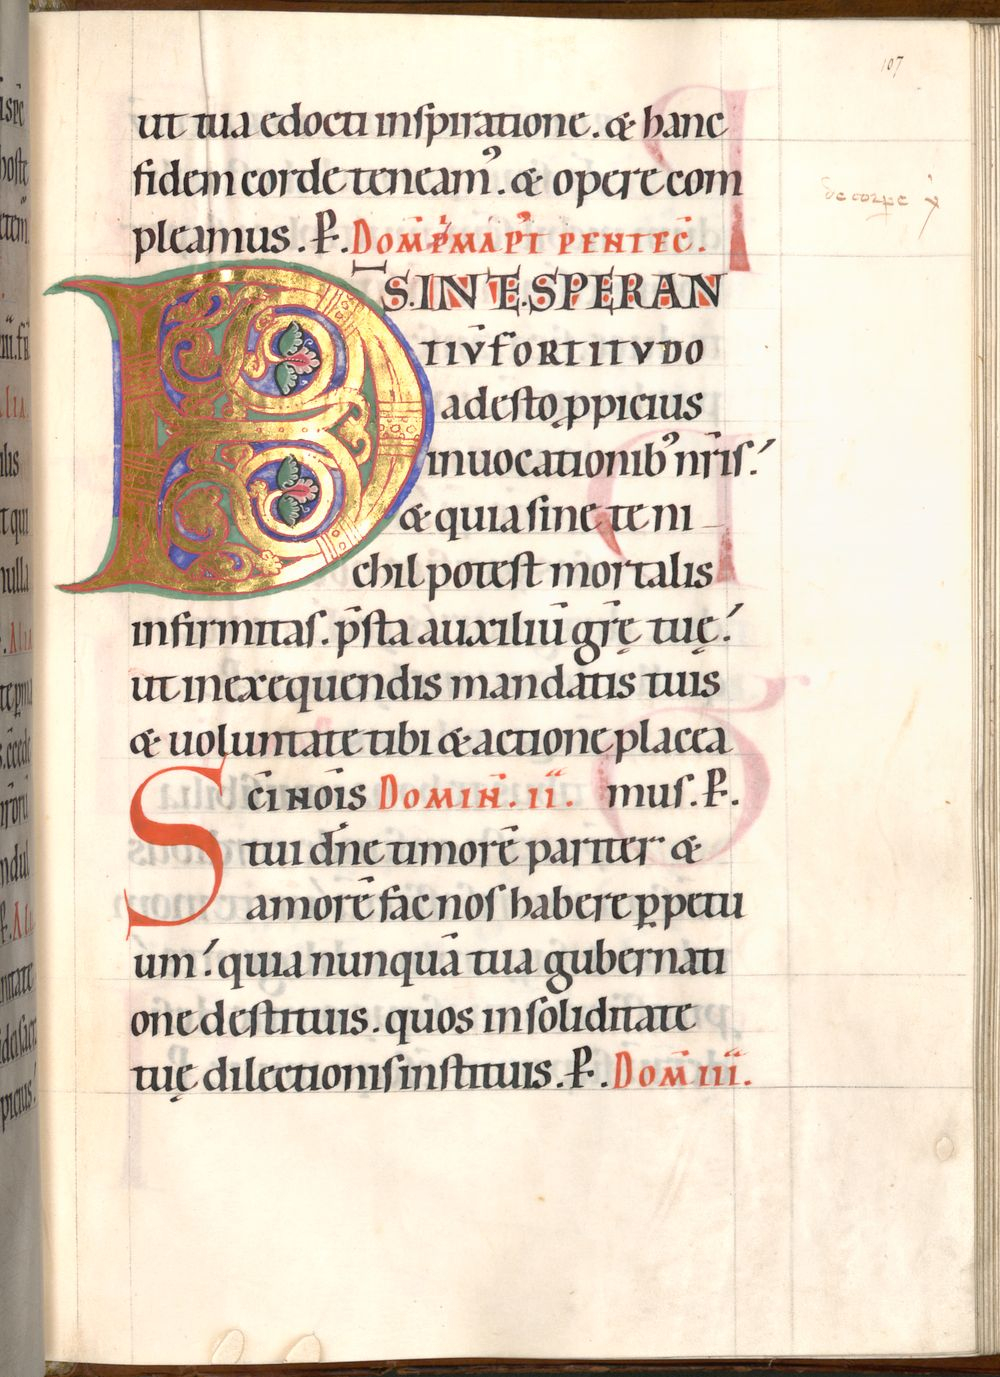 107
ut tua edocti inſpiratione. & hanc
fidem corde teneam᾿. & opere com
pleamus. P̶. DOM̄ P̄MA P̄T PENTEC̄.
D̄S. IN TE. SPERAN
TIŪ FORTITVDO
adeſto ꝓpicius
inuocationib᾿ nr̄iſ.
& quia ſine te ni
chil poteſt mortalis
infirmitaſ. p̄ſta auxiliū gr̄ę tuę.
ut in exequendis mandatis tuis
& uoluntate tibi & actione placea
mus. P̶.
S C̄I NOĪS DOMIN̄. II.
tui dn̄e timorē pariter &
amorē fac nos habere ꝑpetu
um. quia nunquā tua gubernati
one deſtituis. quos in ſoliditate
tuę dilectioniſ inſtituis. P̶. DOM̄ III.
de corpe x